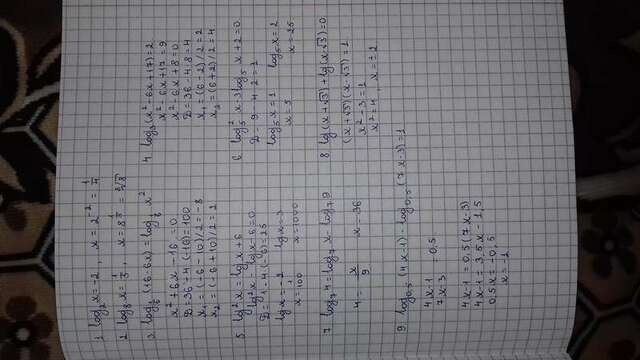 1. log₂x = -2 , x = 2⁻² = 1/4
2. log₈x = 1/3 , x = 8^(1/3) = ∛8
3. (16-6x) = x²
x² + 6x - 16 = 0
D = 36 + 4·(16) = 100
x₁ = (-6 - 10)/2 = -8
x₂ = (-6 + 10)/2 = 2
4. (x² - 6x + 17) = 2
x² - 6x + 17 = 9
x² - 6x + 8 = 0
D = 36 - 4·8 = 4
x₁ = (6 - 2)/2 = 2
x₂ = (6 + 2)/2 = 4
5. lg²x = lg x + 6
lg²x - lg x - 6 = 0
D = 1 - 4·(-6) = 25
lg x = -2 lg x = 3
x = 1/100 x = 1000
6. log₅²x - 3log₅x + 2 = 0
D = 9 - 4·2 = 1
log₅x = 1 log₅x = 2
x = 5 x = 25
7. log₇4 = log₇x - log₇9
4 = x/9 x = 36
8. lg(x + √3) + lg(x - √3) = 0
(x + √3)(x - √3) = 1
x² - 3 = 1
x² = 4 , x = ± 2
9. log₀,₅(4x-1) - log₀,₅(7x-3) = 1
(4x-1)/(7x-3) = 0,5
4x-1 = 0,5(7x-3)
4x-1 = 3,5x - 1,5
0,5x = -0,5
x = -1